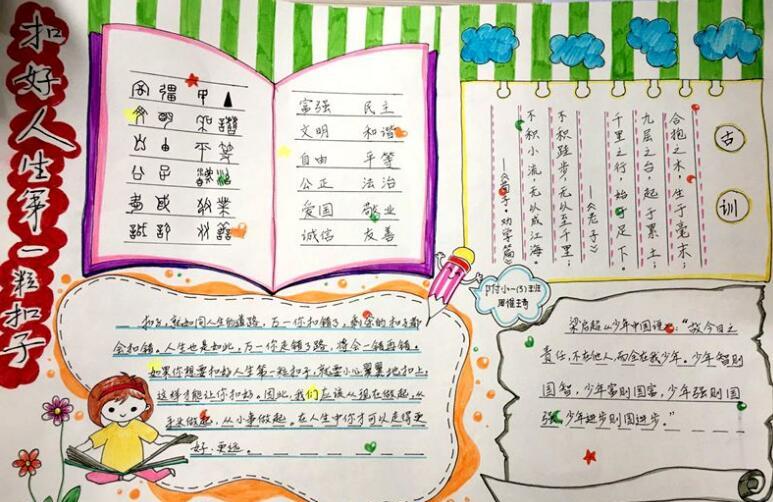 扣好人生第一粒扣子
富强 民主
文明 和谐
自由 平等
公正 法治
爱国 敬业
诚信 友善
古训
合抱之木,生于毫末;
九层之台,起于累土;
千里之行,始于足下。
——《老子》
不积跬步,无以至千里;
不积小流,无以成江海。
——《荀子·劝学篇》
附小一(3)班
扣子,就如同人生的道路,万一你扣错了,剩余的扣子都
会扣错。人生也是如此,万一你走错了路,将会一错再错。
如果你想要扣好人生第一粒扣子,就要小心翼翼地扣上,
这样才能让你扣好。因此,我们应该从现在做起,从
手来做起,从小事做起。在人生中你才可以走得更
好、更远。
梁启超《少年中国说》:“故今日之
责任,不在他人,而全在我少年,少年智则
国智,少年富则国富,少年强则国
强,少年进步则国进步。”